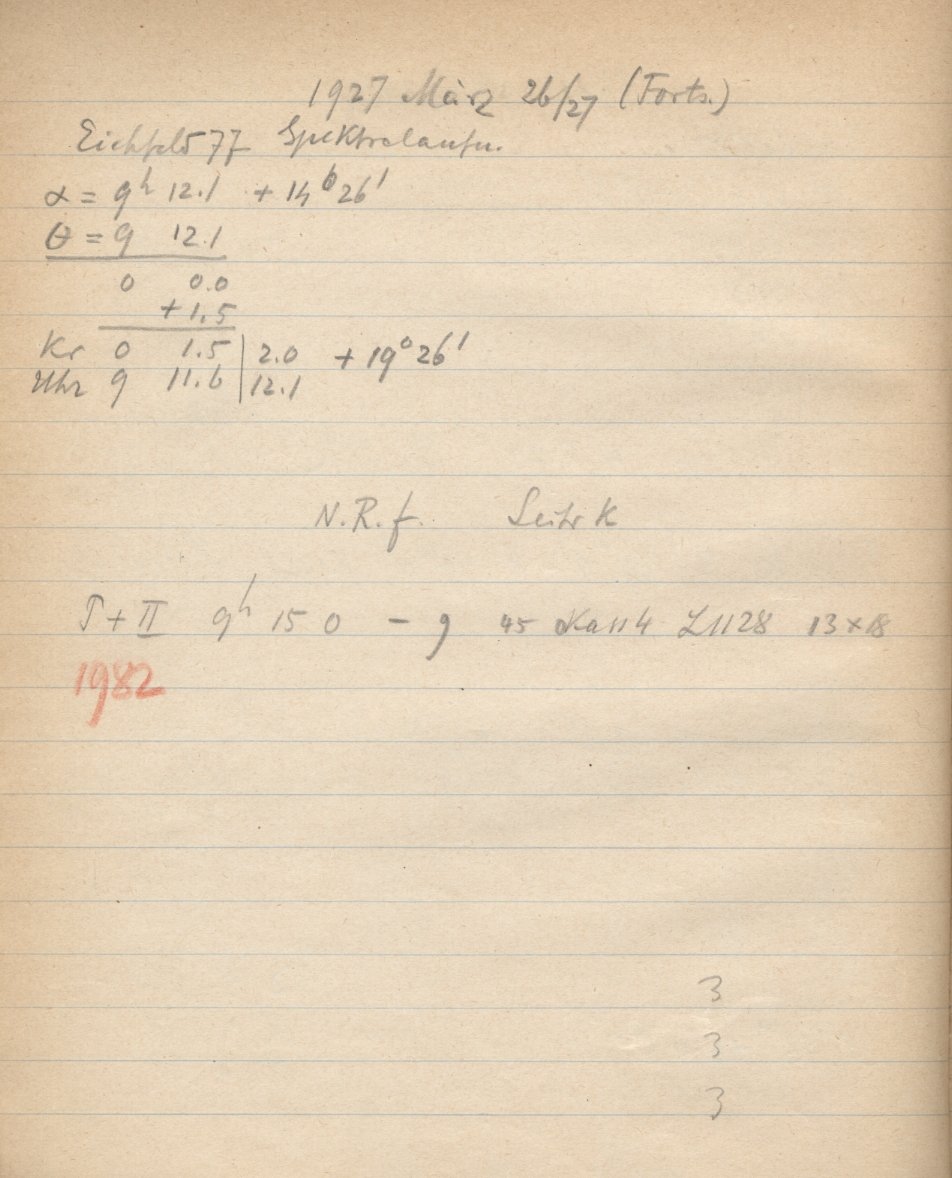 1927 März 26/27 (Forts.)
Eichfeld 77 Spektralaufn.
α = 9h 12.1 + 14° 26'
θ = 9 12.1
0 0.0
+ 1.5
Kr 0 1.5 | 2.0 + 19° 26'
Uhr 9 11.6 | 12.1
N.R.f. Leitr K
I + II 9h 15 0 - 9 45 114 L1128 13 × 18
1982
3
3
3